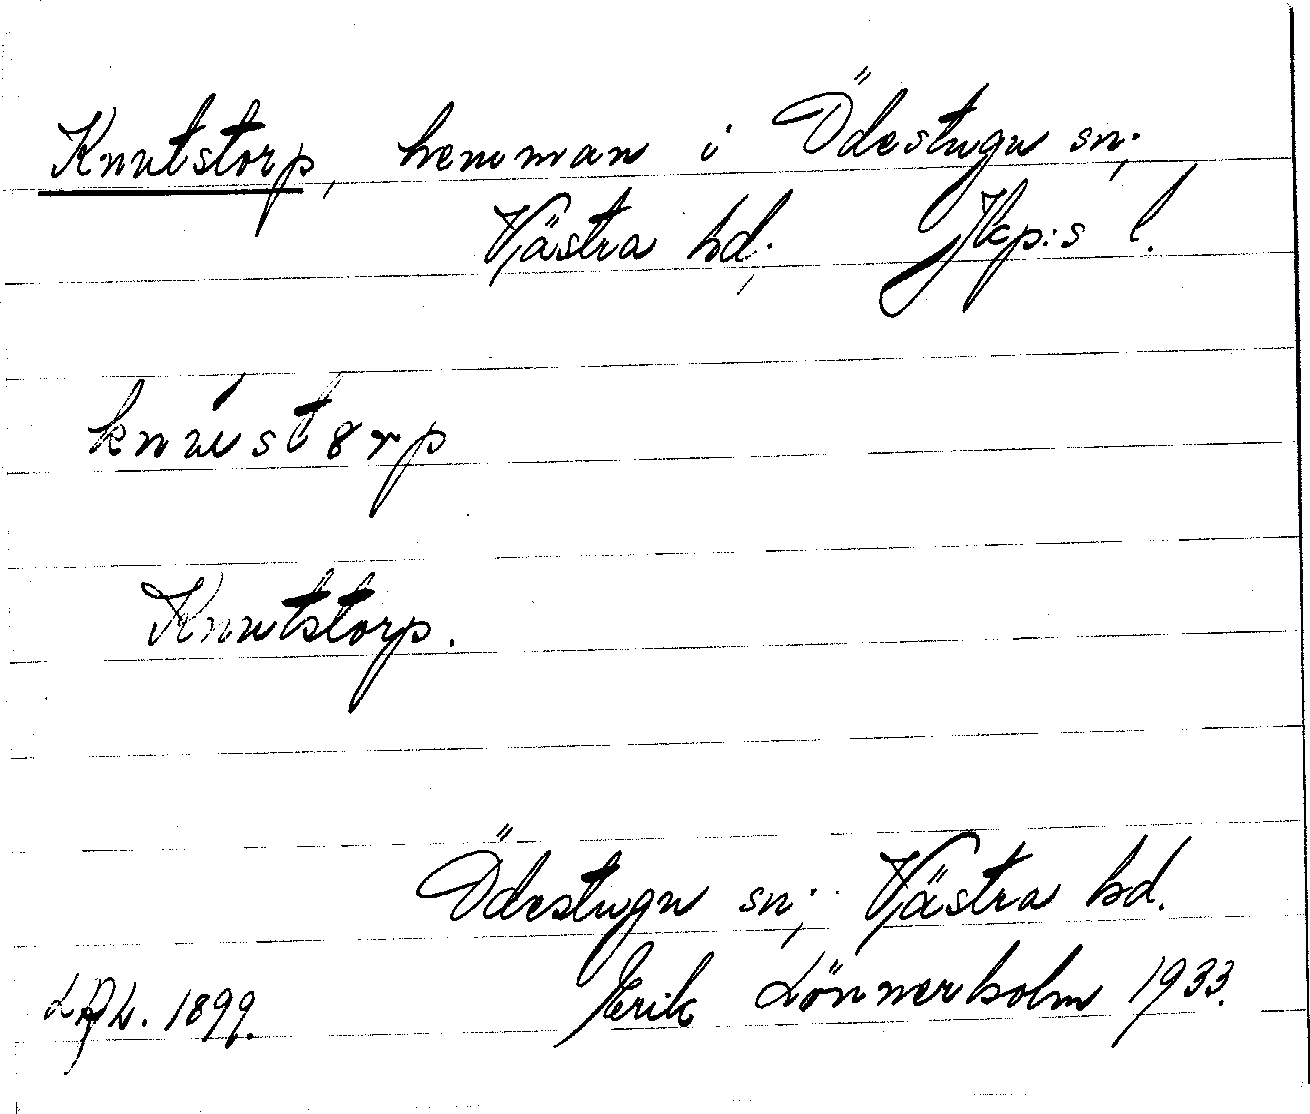 Knutstorp, hemman i Ödestugu sn;
Västra hd; Jkp:s l.
knústorp
Knutstorp.
Ödestugu sn; Västra hd.
Erik Lönnerholm 1933.
1899.